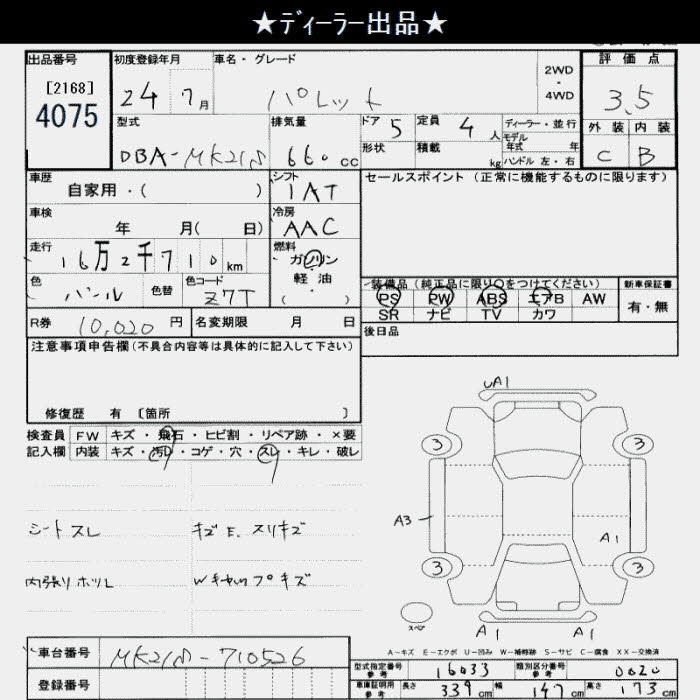 ★ディーラー出品★
出品番号
[2168]
4075
初度登録年月
24 7月
車名・グレード
パレット
2WD
・
4WD
評価点
3.5
外装 内装
C B
型式
DBA-MK21S
排気量
660cc
ドア 5
定員 4人
形状
積載 kg
ディーラー・並行
モデル
年式 年
ハンドル 左・右
車歴
自家用・( )
シフト
IAT
車検
年 月( 日)
冷房
AAC
走行
16万2千710km
燃料
ガソリン
・
軽油
( )
色
パール
色替
色コード
Z7T
R券 10,020円
名変期限 月 日
セールスポイント(正常に機能するものに限ります)
装備品(純正品に限り○をつけてください)
PS PW ABS エアB AW
SR ナビ TV カワ
新車保証書
有・無
後日品
注意事項申告欄(不具合内容等は具体的に記入して下さい)
修復歴 有 [箇所 ]
検査員 FW キズ・飛石・ヒビ割・リペア跡・×要
記入欄 内装 キズ・汚レ・コゲ・穴・スレ・キレ・破レ
シートスレ
キズE. スリキズ
内張りホツレ
Wキャップキズ
UA1
3 3
A3
A1
3 3
スペア
A1 A1
A-キズ E-エクボ U-凹み W-補修跡 S-サビ C-腐食 XX-交換済
車台番号 MK21S-710526
登録番号
型式指定番号
参考
16033
類別区分番号
参考
0020
車庫証明用
参考
長さ 339cm 幅 147cm 高さ 173cm